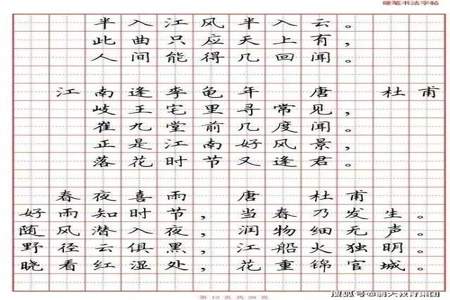 硬笔书法字帖
半入江风半入云。
此曲只应天上有,
人间能得几回闻。
江南逢李龟年 唐 杜甫
岐王宅里寻常见,
崔九堂前几度闻。
正是江南好风景,
落花时节又逢君。
春夜喜雨 唐 杜甫
好雨知时节,当春乃发生。
随风潜入夜,润物细无声。
野径云俱黑,江船火独明。
晓看红湿处,花重锦官城。